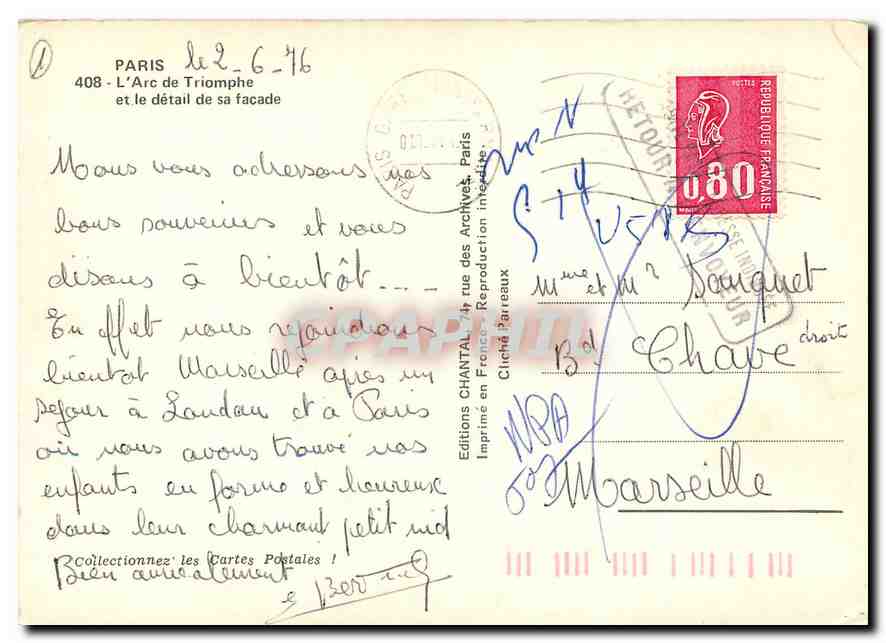 1
PARIS le 2-6-76
408 - L'Arc de Triomphe
et le détail de sa façade
Nous vous adressons nos
bons souvenirs et vous
disons à bientôt....
En effet nous rejoindrons
bientôt Marseille après un
séjour à Landau et à Paris
où nous avons trouvé nos
enfants en forme et heureux
dans leur charmant petit nid
Collectionnez les Cartes Postales !
Bien amicalement
Editions CHANTAL, 74, rue des Archives, Paris
Imprimé en France - Reproduction interdite.
Cliché Parreaux
PARIS
RETOUR A L'ENVOYEUR
POSTES
REPUBLIQUE FRANÇAISE
0,80
Mme et Mr Donquet
Bd Chave droit
NPA
Marseille
CPAPHIL